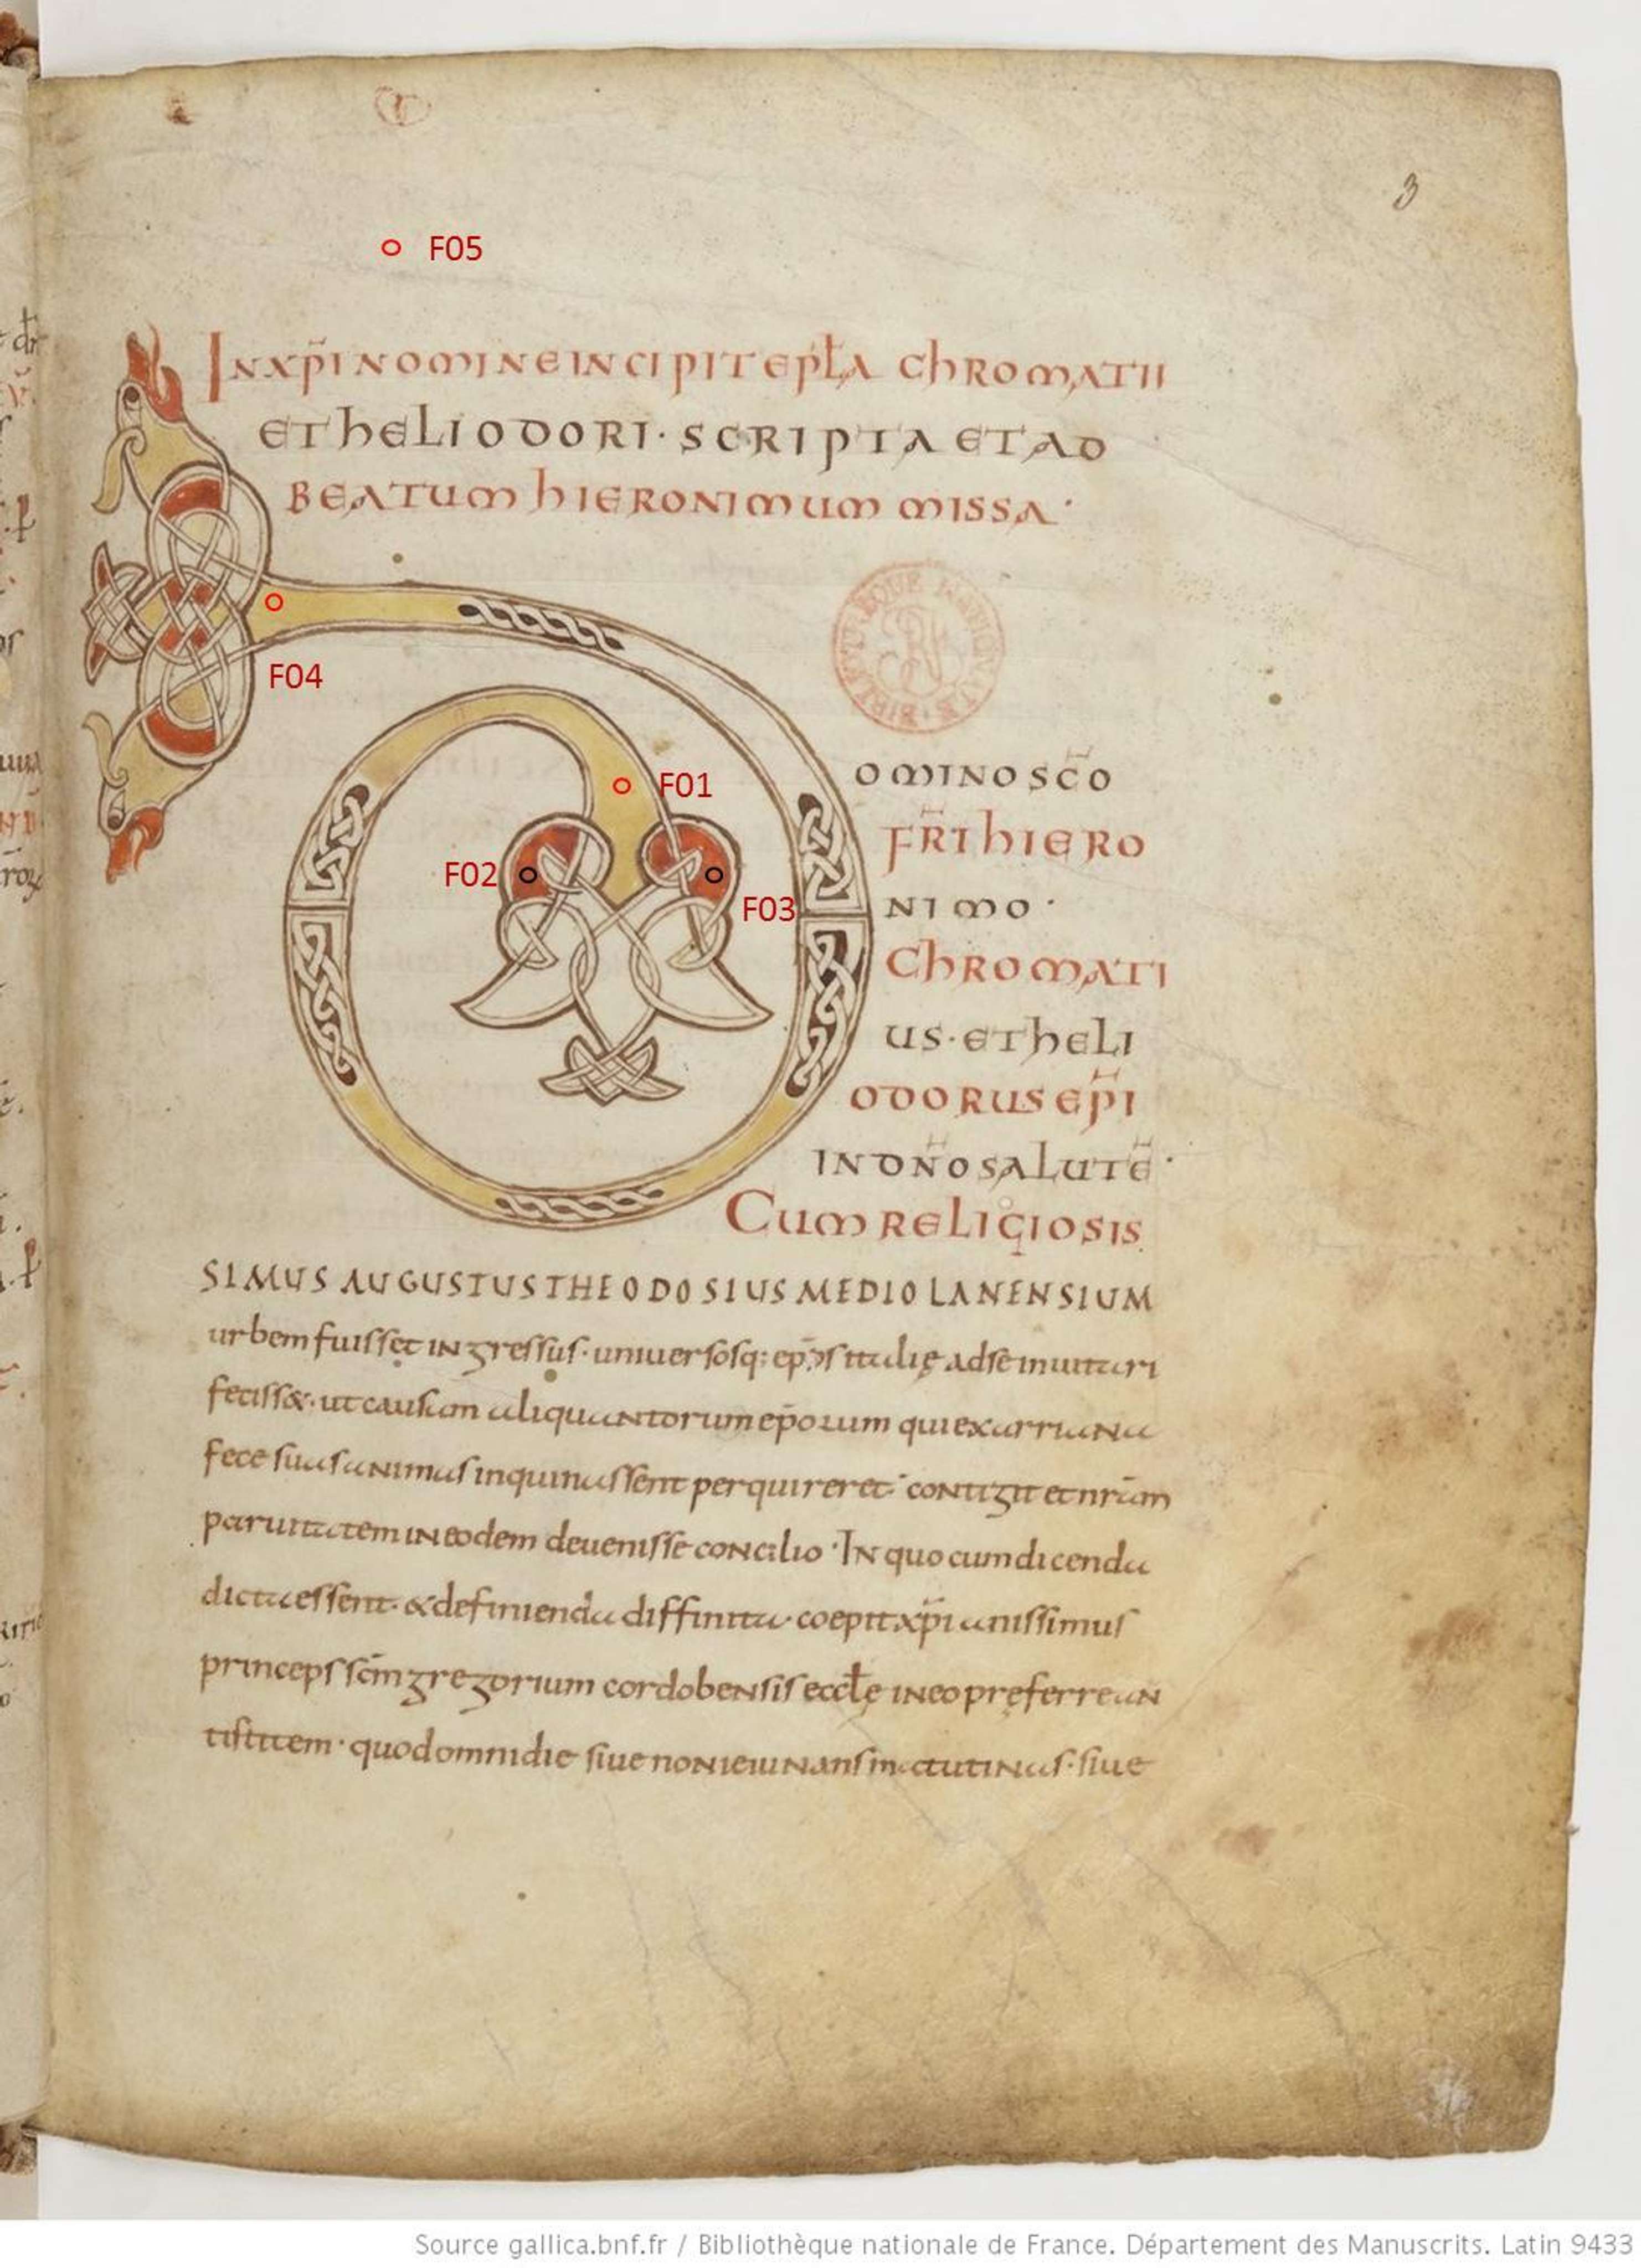 3
F05
INXP̄I NOMINE INCIPIT EPŁA CHROMATII
ET HELIODORI · SCRIPTA ET AD
BEATUM HIERONIMUM MISSA ·
F04
OMINO SC̄O
F01
FR̄I HIERO
F02
F03
NIMO ·
CHROMATI
US · ET HELI
ODORUS EP̄I
IN DN̄O SALUTĒ ·
CUM RELIGIOSIS
SIMUS AUGUSTUS THEODOSIUS MEDIOLANENSIUM
urbem fuisset ingressus · uniuersosq; ep̄os italię ad se inuitari
feciss& · ut causam aliquantorum ep̄orum qui ex arriana
fece suas animas inquinassent perquireret · contigit et nr̄am
paruitatem in eodem deuenisse concilio · In quo cum dicenda
dicta essent · & definienda diffinita · coepit xp̄ianissimus
princeps sc̄m gregorium cordobensis eccłę in eo pręferre an
tistitem · quod omni die siue non ieiunans matutinas · siue
Source gallica.bnf.fr / Bibliothèque nationale de France. Département des Manuscrits. Latin 9433